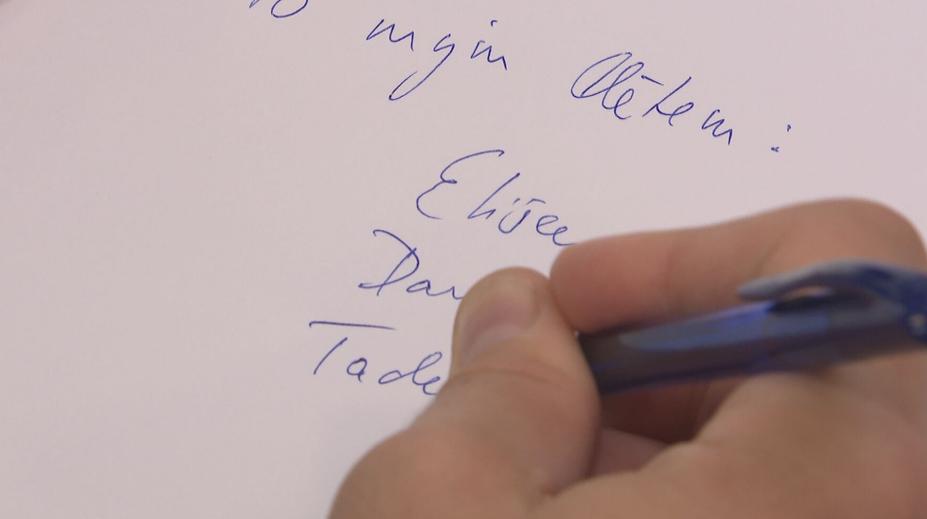 mým dětem :
Elišce
Dan
Tade